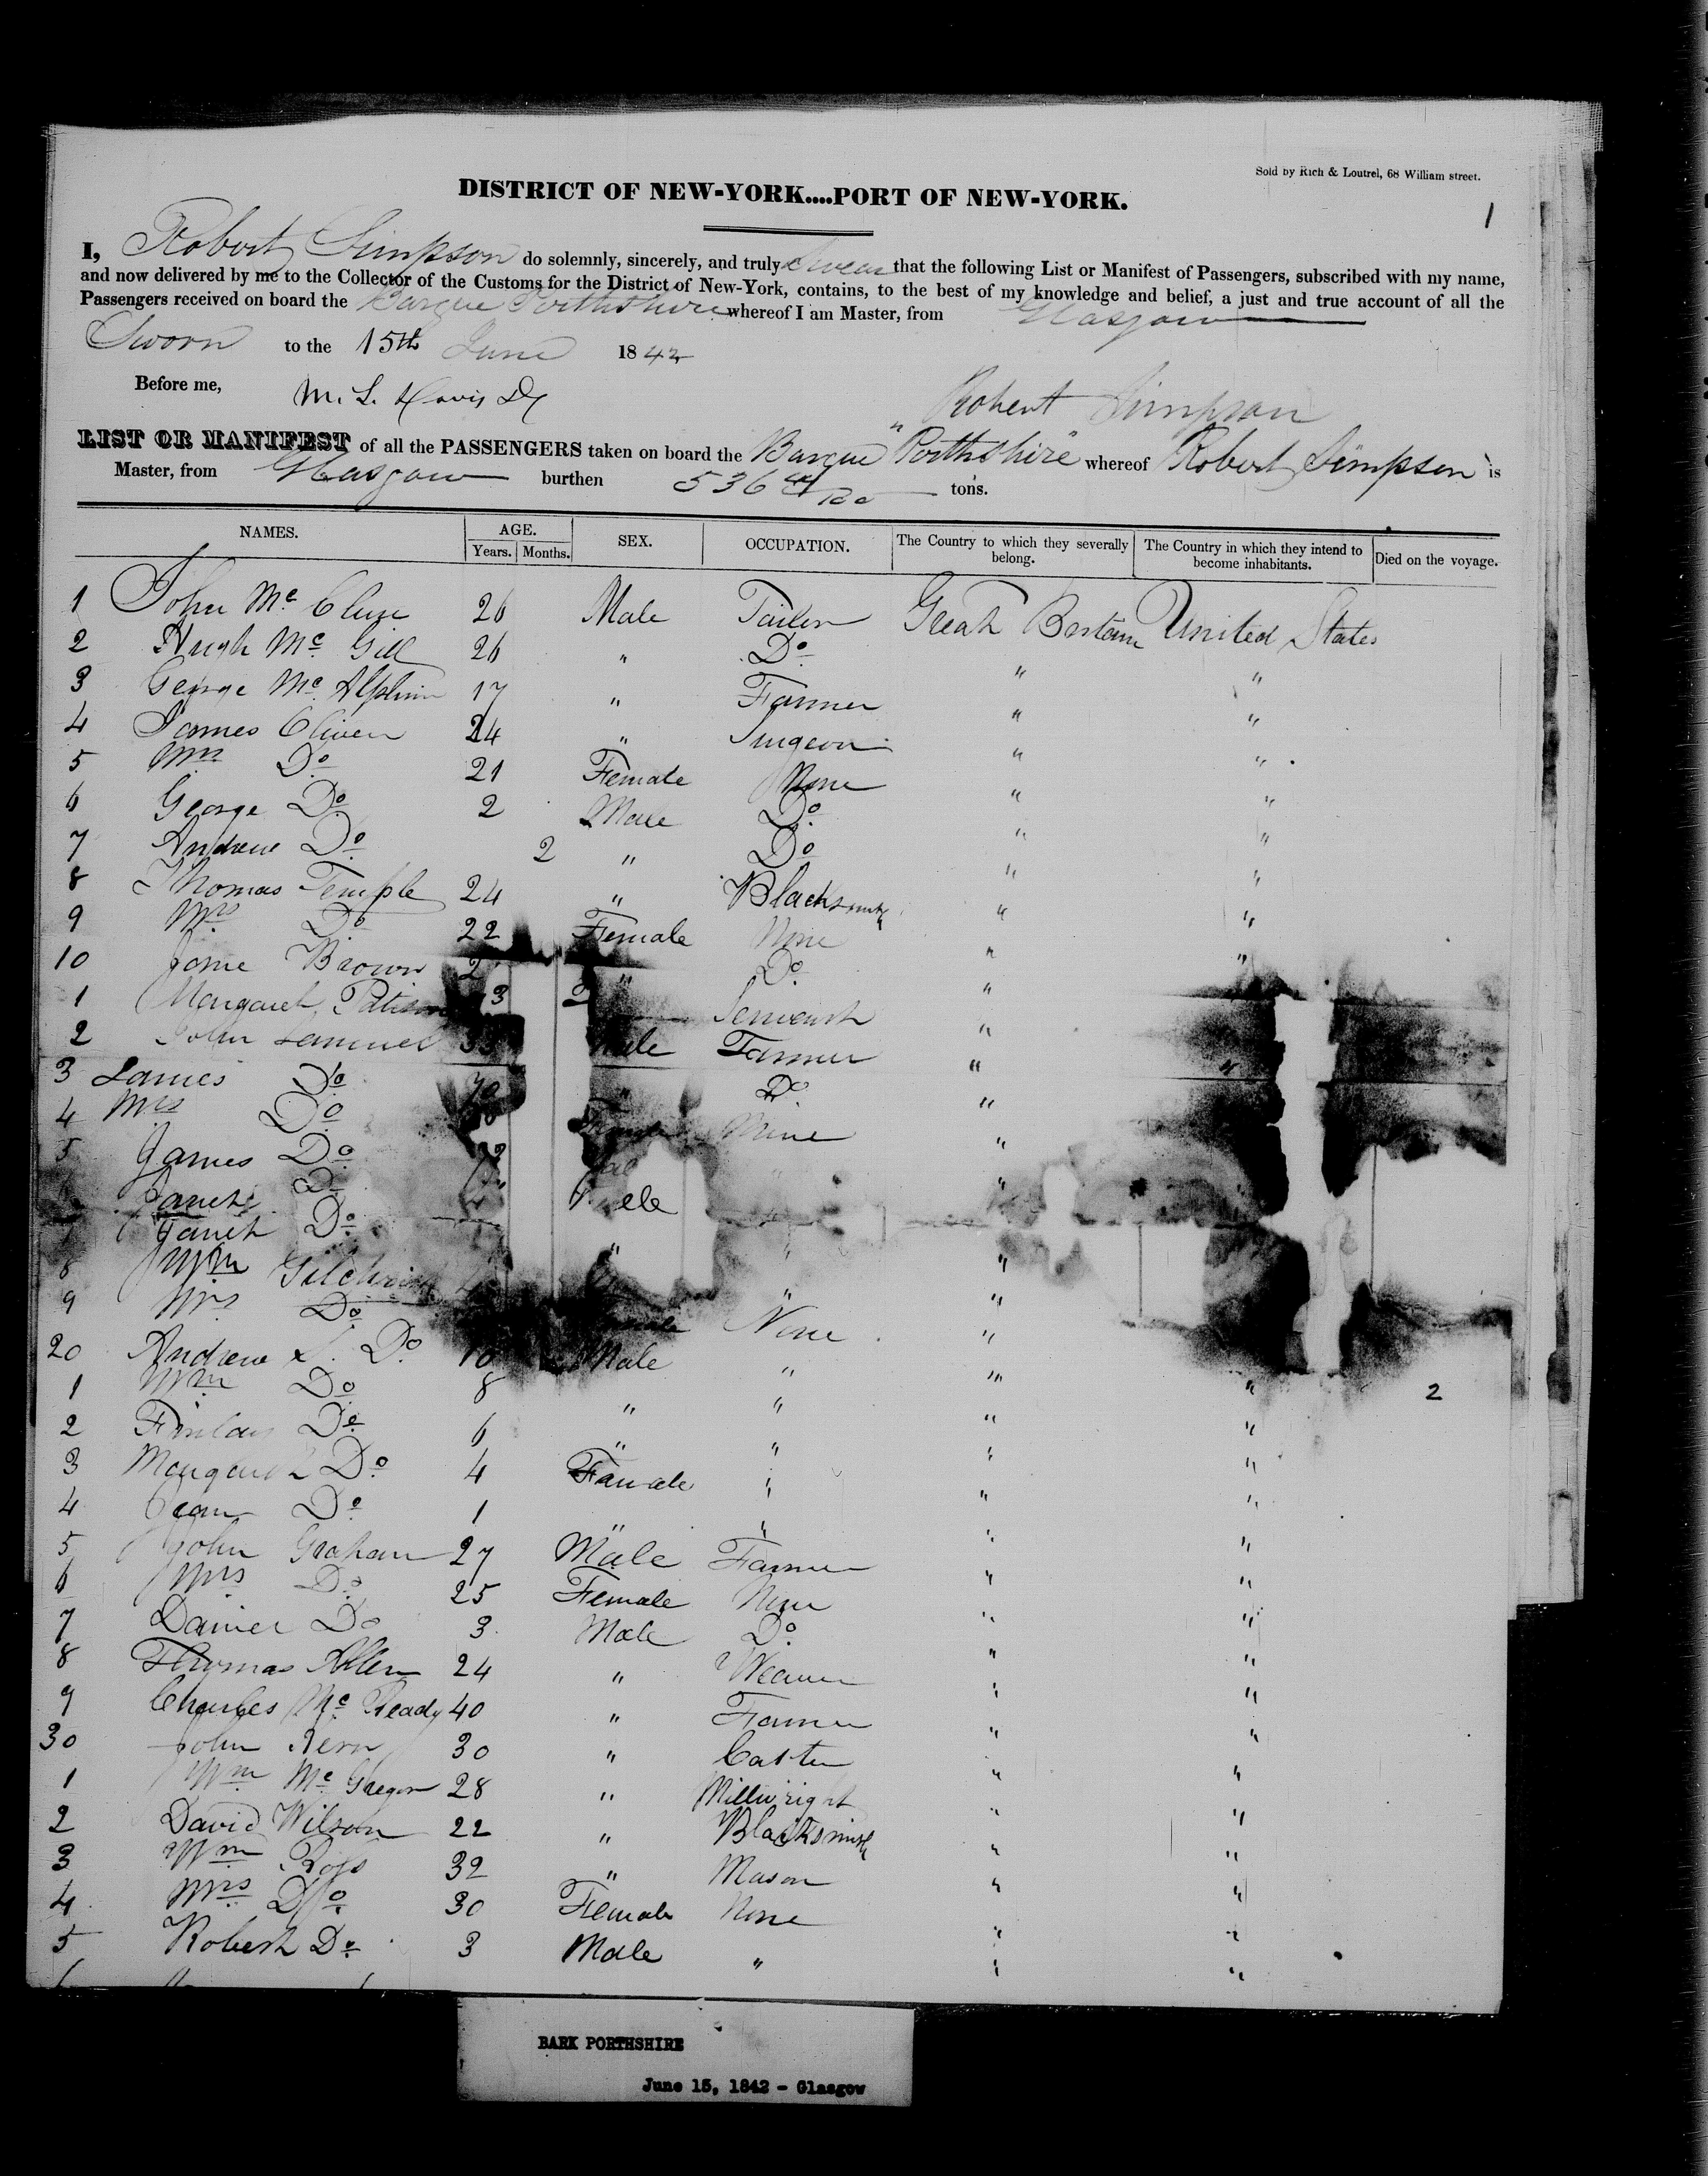 Sold by Rich & Loutrel, 68 William street.
DISTRICT OF NEW-YORK....PORT OF NEW-YORK.
1
I, Robert Simpson do solemnly, sincerely, and truly Swear that the following List or Manifest of Passengers, subscribed with my name,
and now delivered by me to the Collector of the Customs for the District of New-York, contains, to the best of my knowledge and belief, a just and true account of all the
Passengers received on board the Barque Porthshire whereof I am Master, from Glasgow
Sworn to the 15th June 1842
Before me, M. L. Davis
Robert Simpson
LIST OR MANIFEST of all the PASSENGERS taken on board the Barque "Porthshire" whereof Robert Simpson is
Master, from Glasgow burthen 536 tons.
NAMES. AGE. Years. Months. SEX. OCCUPATION. The Country to which they severally belong. The Country in which they intend to become inhabitants. Died on the voyage.
1 John Mc Clure 26 Male Tailor Great Bertain United States
2 Hugh Mc Gill 26 " Do " "
3 George Mc Alphin 17 " Farmer " "
4 James Oliver 24 " Surgeon " "
5 Mrs Do 21 Female None " "
6 George Do 2 Male Do " "
7 Andrew Do 2 " Do " "
8 Thomas Temple 24 " Blacksmith " "
9 Mrs Do 22 Female None " "
10 Jane Brown 2 " Do "
1 Margaret 3 Servant "
2 John 33 Male Farmer " "
3 James Do Do "
4 Mrs Do None "
5 James Do "
Janet Do
7 Janet Do " " "
8 Wm Gilchrist " "
9 Mrs Do None "
20 Andrew Do 10 Male " " " 2
1 Wm Do 8 " " " "
2 Finlay Do 6 " " " "
3 Margaret Do 4 Female " " "
4 Jean Do 1 " " " "
5 John Graham 27 Male Farmer " "
6 Mrs Do 25 Female None " "
7 Daniel Do 3 Male Do " "
8 Thomas Allen 24 " Weaver " "
9 Charles Mc Ready 40 " Farmer " "
30 John Kerr 30 " Carter " "
1 Wm Mc Gregor 28 " Millwright " "
2 David Wilson 22 " Blacksmith " "
3 Wm Ross 32 " Mason " "
4 Mrs Do 30 Female None " "
5 Robert Do 3 Male " " "
BARK PORTHSHIRE
June 15, 1842 - Glasgow